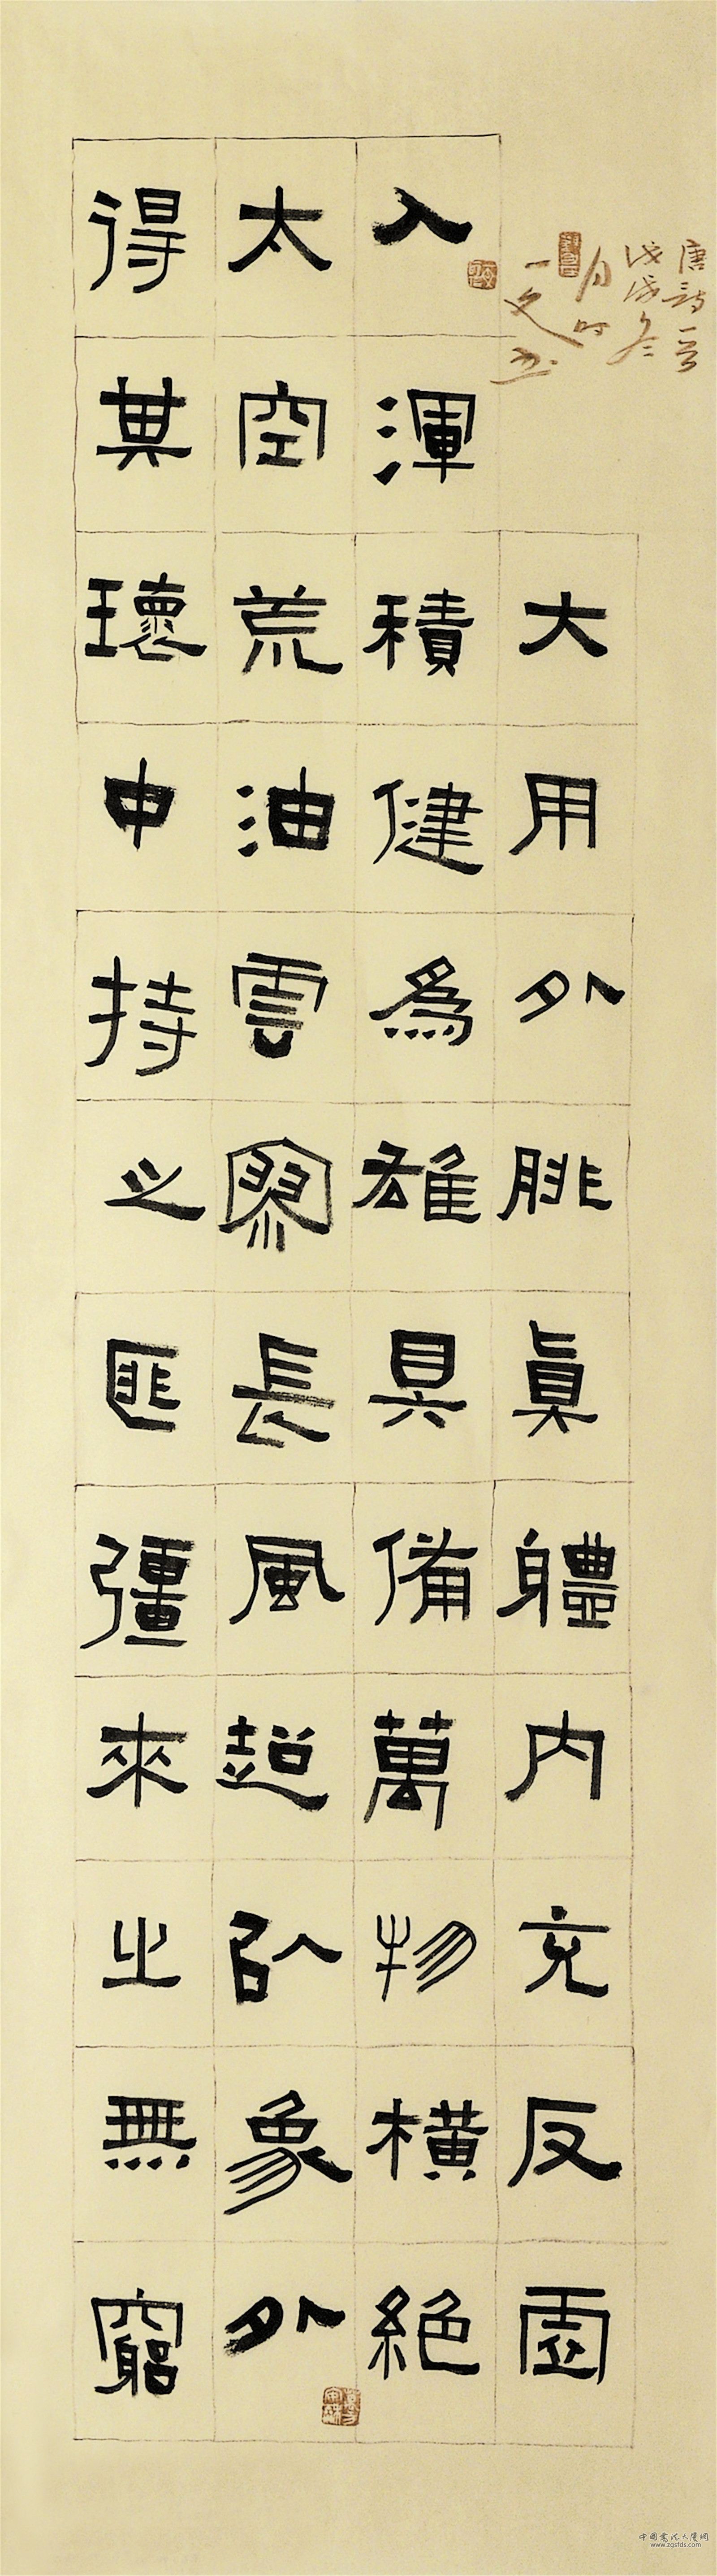 大用外腓眞軆内充反虛
入渾積健爲雄具備萬物橫絕
太空荒油雲寥長風超以象外
得其環中持之匪彊來之無窮
唐詩一首
戊戌冬
月
一文书
中国书法人才网
www.zgsfds.com